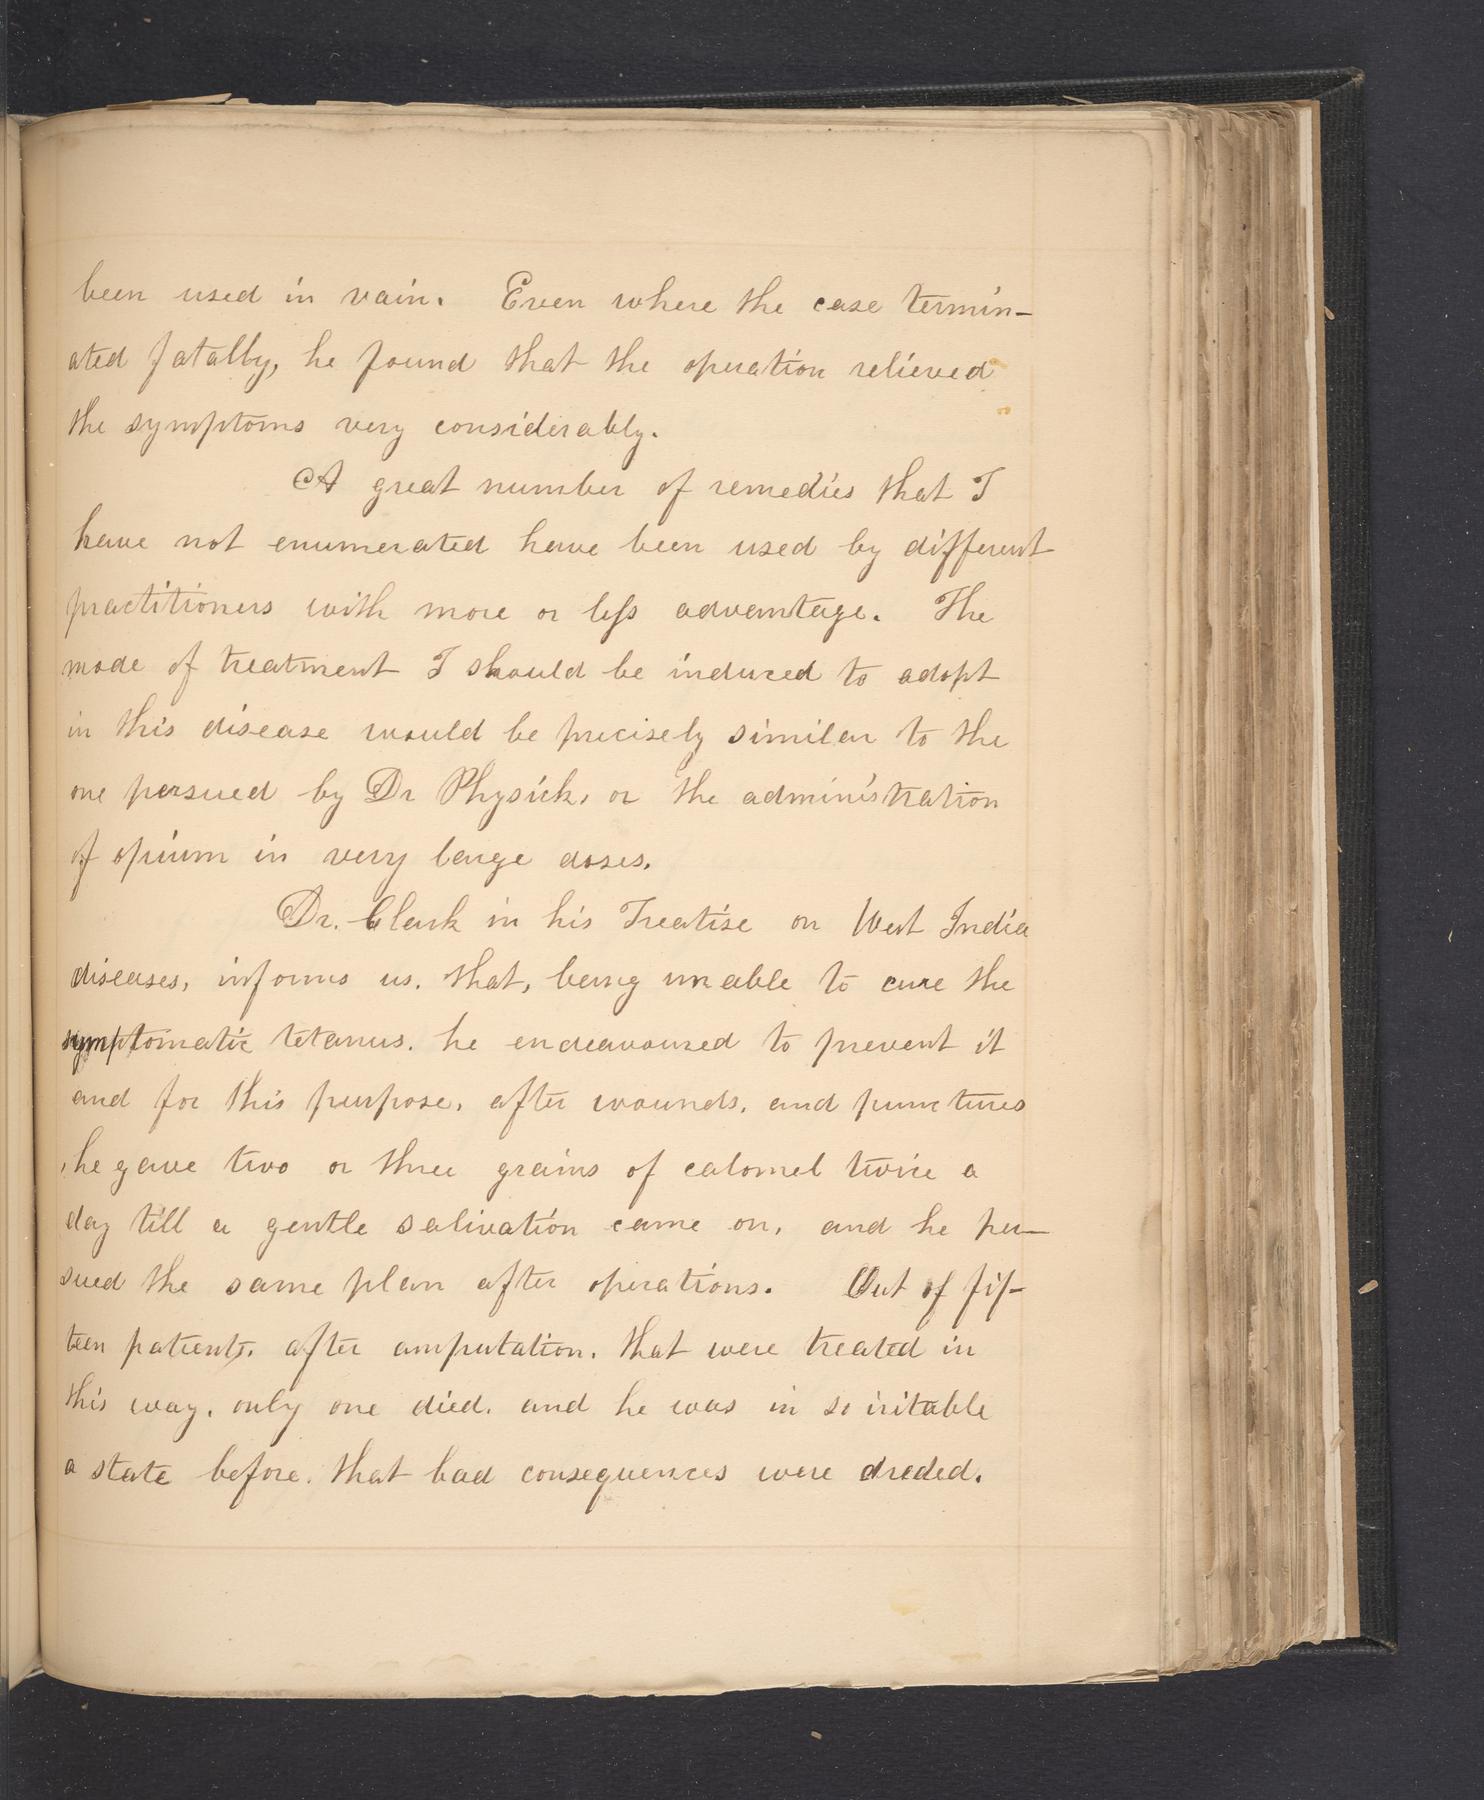 been used in vain. Even where the case termin-
ated fatally, he found that the operation relieved
the symptoms very considerably.
A great number of remedies that I
have not enumerated have been used by different
practitioners with more or less advantage. The
mode of treatment I should be induced to adopt
in this disease would be precisely similar to the
one persued by Dr Physick, or the administration
of opium in very large doses.
Dr. Clark in his Treatise on West India
diseases, informs us. that, being unable to cure the
symptomatic tetanus. he endeavoured to prevent it
and for this purpose, after wounds, and punctures
, he gave two or three grains of calomel twice a
day till a gentle salivation came on, and he pur-
sued the same plan after operations. Out of fif-
teen patients, after amputation, that were treated in
this way, only one died, and he was in so iritable
a state before, that bad consequences were dreded.